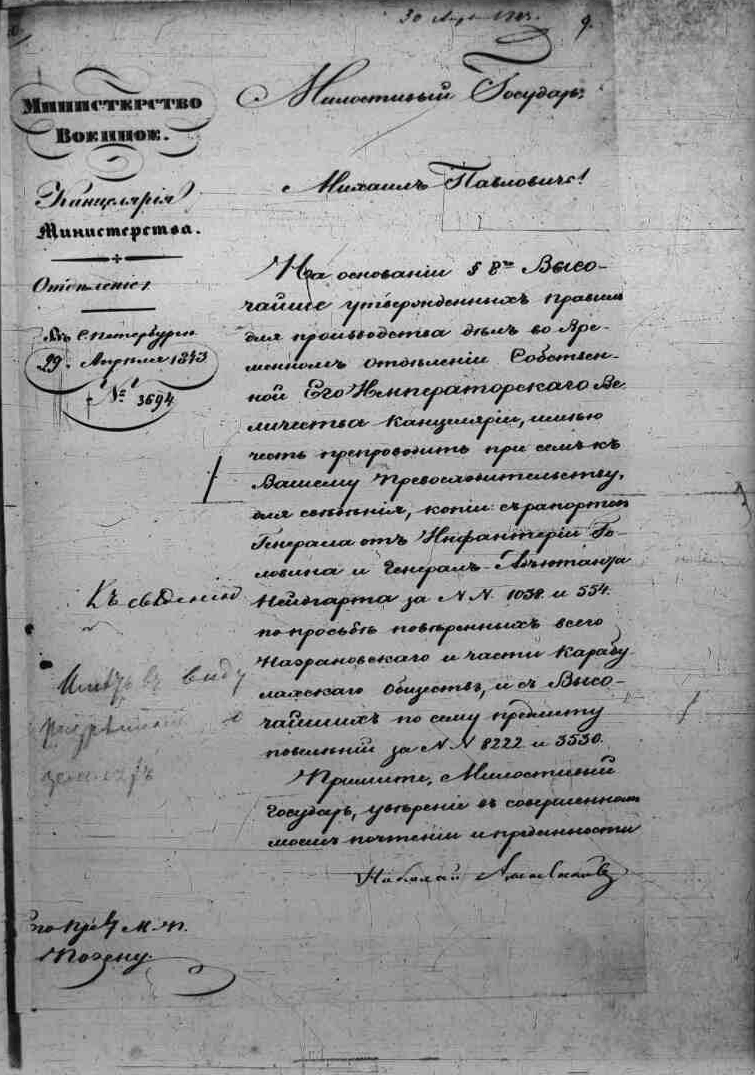 30 Апр. 1843.
9.
Министерство
Военное.
Канцелярія
Министерства.
Отдѣленіе 1
Въ С.Петербургѣ
29. Апрѣля 1843
№ 3694
Милостивый Государь,
Михаилъ Павловичъ!
На основаніи § 8го Высо-
чайше утвержденныхъ правилъ
для производства дѣлъ во Вре-
менномъ Отдѣленіи Собствен-
ной Его Императорскаго Ве-
личества Канцеляріи, имѣю
честь препроводить при семъ къ
Вашему Превосходительству,
для свѣденія, копіи съ рапортовъ
Генерала отъ Инфантеріи Го-
ловина и Генералъ-Адъютанта
Нейдгарта за N.N. 1038. и 554.
по просьбѣ повѣренныхъ всего
Назрановскаго и части Карабу-
лахскаго Обществъ, и съ Высо-
чайшихъ по сему предмету
повелѣній за N N 8222 и 3530.
Примите, Милостивый
Государь, увѣреніе въ совершенномъ
моемъ почтеніи и преданности
Къ сведенію
Имѣть въ виду
Его Пр M. П.
Позену.